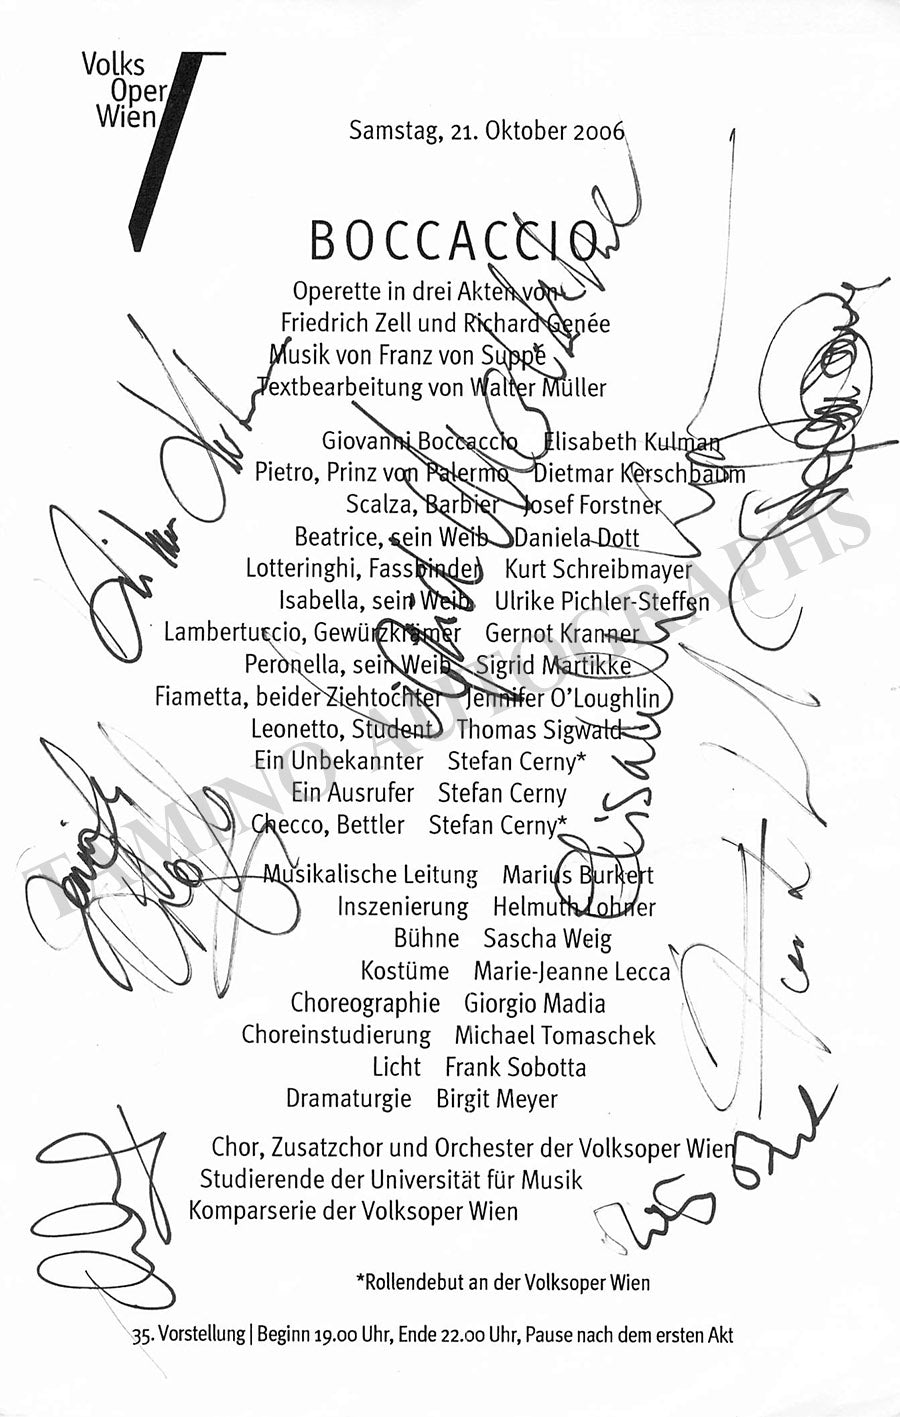 Volks
Oper
Wien
Samstag, 21. Oktober 2006
BOCCACCIO
Operette in drei Akten von
Friedrich Zell und Richard Genée
Musik von Franz von Suppé
Textbearbeitung von Walter Müller
Giovanni Boccaccio Elisabeth Kulman
Pietro, Prinz von Palermo Dietmar Kerschbaum
Scalza, Barbier Josef Forstner
Beatrice, sein Weib Daniela Dott
Lotteringhi, Fassbinder Kurt Schreibmayer
Isabella, sein Weib Ulrike Pichler-Steffen
Lambertuccio, Gewürzkrämer Gernot Kranner
Peronella, sein Weib Sigrid Martikke
Fiametta, beider Ziehtochter Jennifer O'Loughlin
Leonetto, Student Thomas Sigwald
Ein Unbekannter Stefan Cerny*
Ein Ausrufer Stefan Cerny
Checco, Bettler Stefan Cerny*
Musikalische Leitung Marius Burkert
Inszenierung Helmuth Lohner
Bühne Sascha Weig
Kostüme Marie-Jeanne Lecca
Choreographie Giorgio Madia
Choreinstudierung Michael Tomaschek
Licht Frank Sobotta
Dramaturgie Birgit Meyer
Chor, Zusatzchor und Orchester der Volksoper Wien
Studierende der Universität für Musik
Komparserie der Volksoper Wien
*Rollendebut an der Volksoper Wien
35. Vorstellung | Beginn 19.00 Uhr, Ende 22.00 Uhr, Pause nach dem ersten Akt
TAMINO AUTOGRAPHS